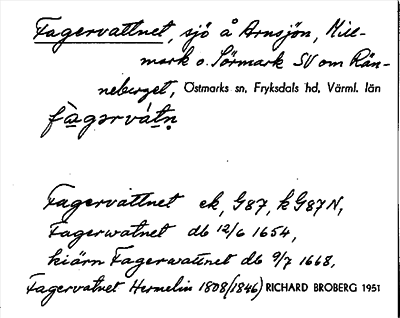 Fagervattnet, sjö å Arnsjön, Kill-
mark o. Sörmark SV om Rän-
neberget, Östmarks sn, Fryksdals hd, Värml. län
fàgərvátn̥
Fagervattnet ek, G87, k G87N,
Fagerwatnet db 12/6 1654,
kiärn Fagerwattnet db 9/7 1668,
Fagervatnet Hermelin 1808(1846) RICHARD BROBERG 1951